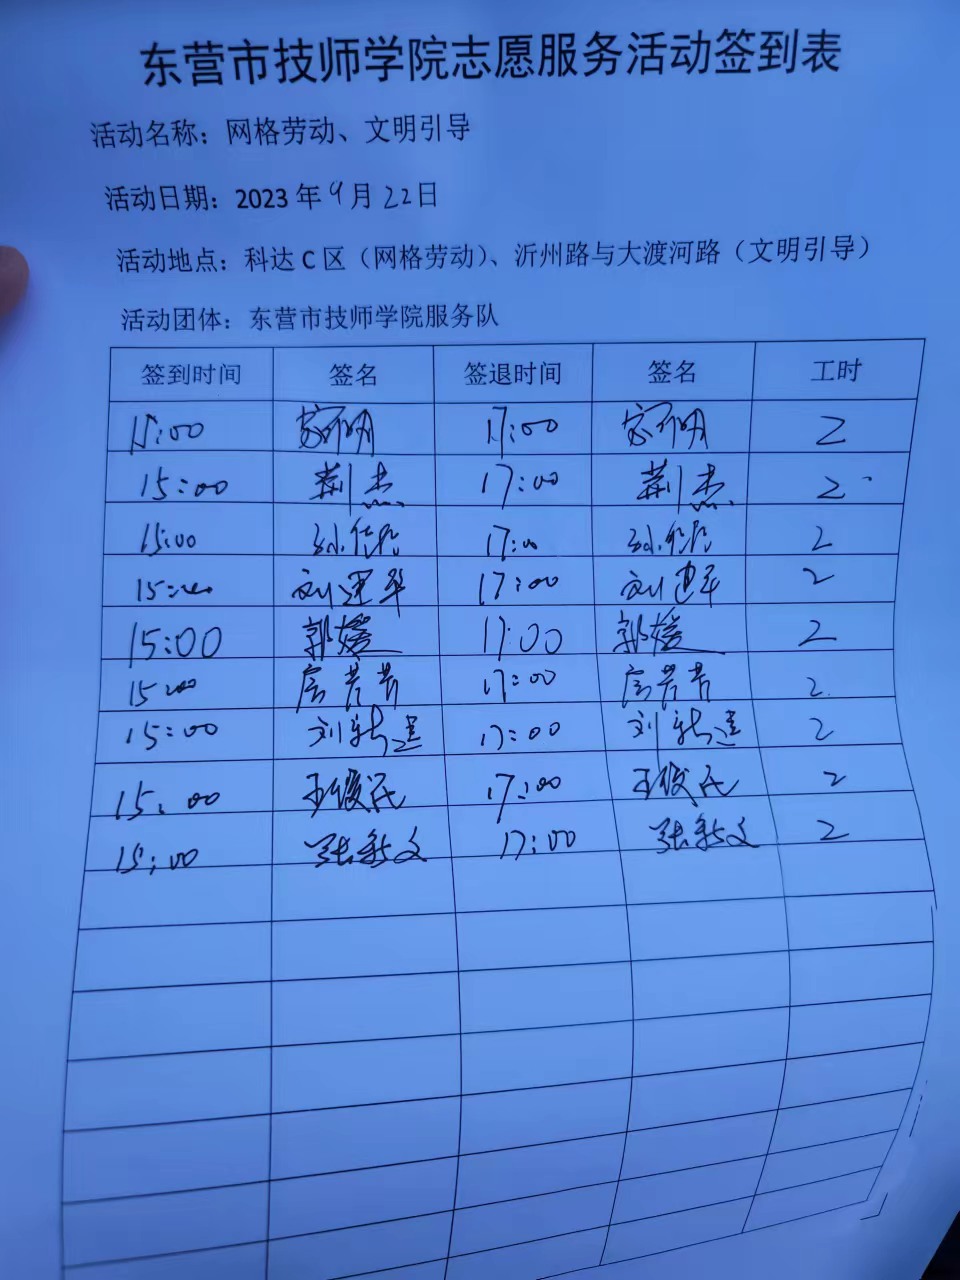 东营市技师学院志愿服务活动签到表
活动名称：网格劳动、文明引导
活动日期：2023年9月22日
活动地点：科达C区（网格劳动）、沂州路与大渡河路（文明引导）
活动团体：东营市技师学院服务队
签到时间 签名 签退时间 签名 工时
15:00 17:00 2
15:00 荆杰 17:00 荆杰 2
15:00 17:00 2
15:00 刘建华 17:00 刘建华 2
15:00 郭媛 17:00 郭媛 2
15:00 房芳芳 17:00 房芳芳 2
15:00 刘新建 17:00 刘新建 2
15:00 王俊民 17:00 王俊民 2
15:00 张新文 17:00 张新文 2